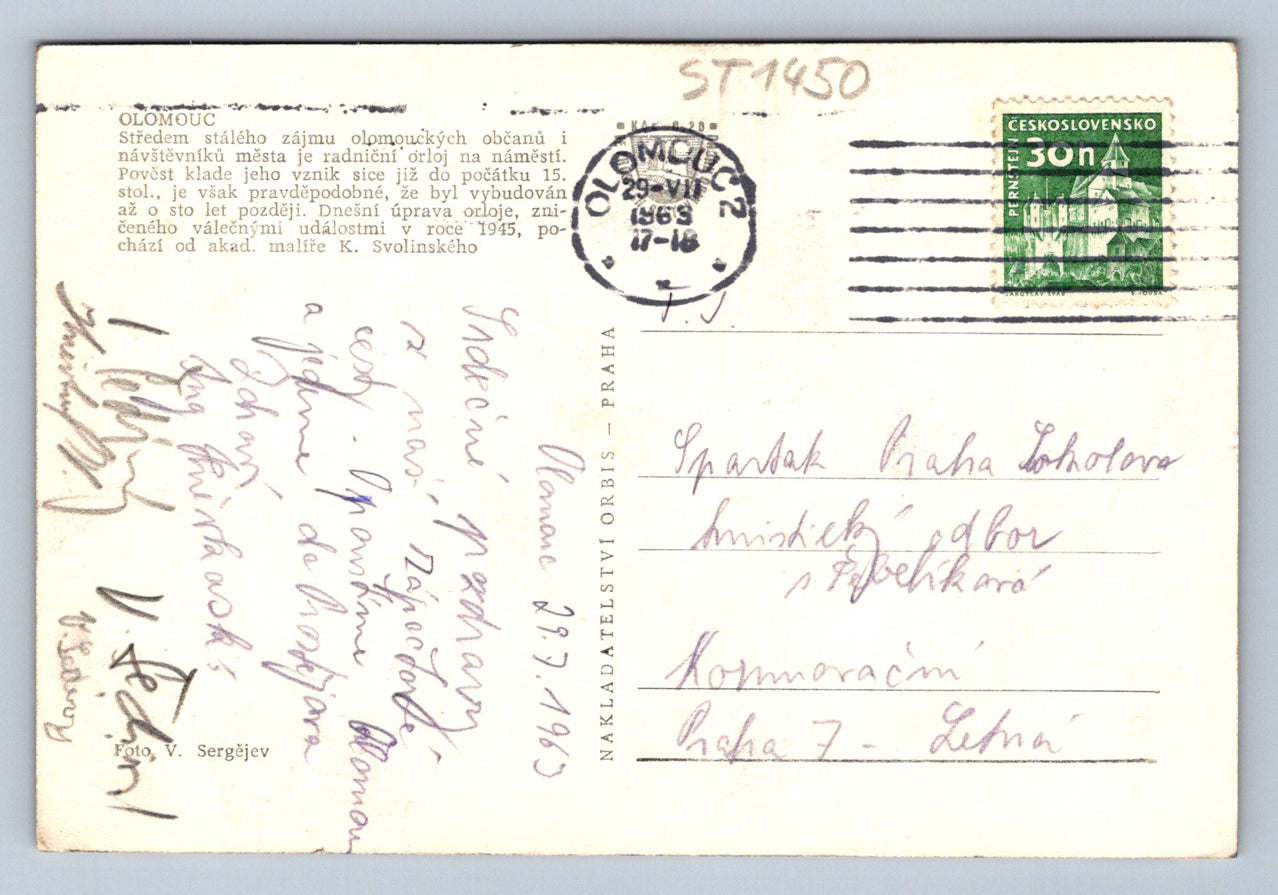 ST1450
OLOMOUC
Středem stálého zájmu olomouckých občanů i
návštěvníků města je radniční orloj na náměstí.
Pověst klade jeho vznik sice již do počátku 15.
stol., je však pravděpodobné, že byl vybudován
až o sto let později. Dnešní úprava orloje, zni-
čeného válečnými událostmi v roce 1945, po-
chází od akad. malíře K. Svolinského
OLOMOUC 2
29-VII
1963
17-18
ČESKOSLOVENSKO
30h
PERNŠTEJN
JAROSLAV ŠVÁB
Olomouc 29.7.1963
Srdečné pozdravy
z naší
cesty. Opouštíme Olomouc
a jedeme do Prostějova
Zdraví
Ing
T. J.
Spartak Praha Sokolovo
turistický odbor
Korunovační
Praha 7 - Letná
NAKLADATELSTVÍ ORBIS — PRAHA
Foto V. Sergějev